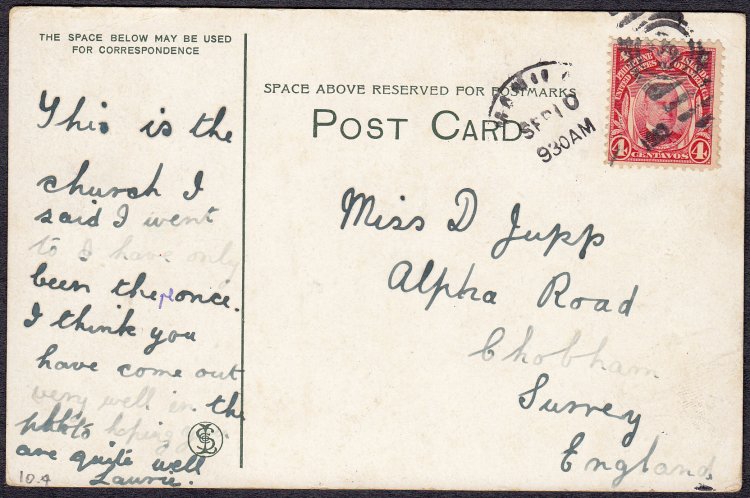 THE SPACE BELOW MAY BE USED
FOR CORRESPONDENCE
This is the
church I
said I went
to I have only
been there once.
I think you
have come out
very well in the
photo hoping
are quite well
Laurie.
10.4
SPACE ABOVE RESERVED FOR POSTMARKS
POST CARD
SEP 10
930AM
PHILIPPINE ISLANDS
UNITED STATES OF AMERICA
4 CENTAVOS 4
Miss D Jupp
Alpha Road
Chobham
Surrey
England